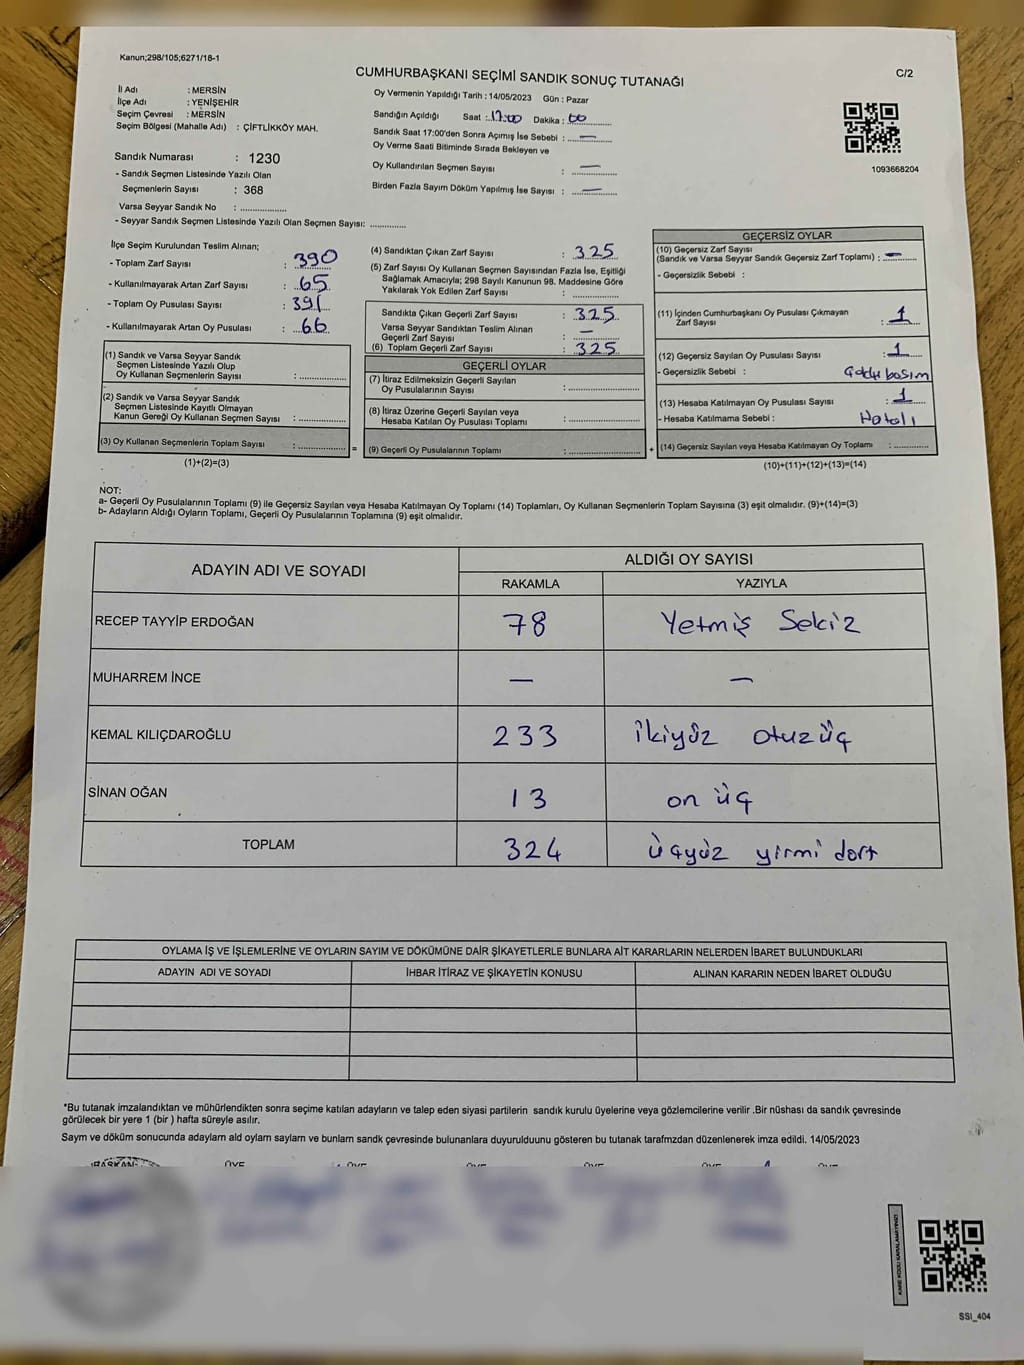 Kanun;298/105;6271/18-1
CUMHURBAŞKANI SEÇİMİ SANDIK SONUÇ TUTANAĞI
C/2
İl Adı : MERSİN
İlçe Adı : YENİŞEHİR
Seçim Çevresi : MERSİN
Seçim Bölgesi (Mahalle Adı) : ÇİFTLİKKÖY MAH.
Sandık Numarası : 1230
- Sandık Seçmen Listesinde Yazılı Olan
Seçmenlerin Sayısı : 368
Varsa Seyyar Sandık No : ................
- Seyyar Sandık Seçmen Listesinde Yazılı Olan Seçmen Sayısı: ............
Oy Vermenin Yapıldığı Tarih : 14/05/2023 Gün : Pazar
Sandığın Açıldığı Saat : 17:00 Dakika : 00
Sandık Saat 17:00'den Sonra Açımış İse Sebebi : —
Oy Verme Saati Bitiminde Sırada Bekleyen ve
Oy Kullandırılan Seçmen Sayısı : —
Birden Fazla Sayım Döküm Yapılmış İse Sayısı : —
1093668204
İlçe Seçim Kurulundan Teslim Alınan;
- Toplam Zarf Sayısı : 390
- Kullanılmayarak Artan Zarf Sayısı : 65
- Toplam Oy Pusulası Sayısı : 391
- Kullanılmayarak Artan Oy Pusulası : 66
(1) Sandık ve Varsa Seyyar Sandık
Seçmen Listesinde Yazılı Olup
Oy Kullanan Seçmenlerin Sayısı : ............
(2) Sandık ve Varsa Seyyar Sandık
Seçmen Listesinde Kayıtlı Olmayan
Kanun Gereği Oy Kullanan Seçmen Sayısı : ............
(3) Oy Kullanan Seçmenlerin Toplam Sayısı : ............
(1)+(2)=(3)
(4) Sandıktan Çıkan Zarf Sayısı : 325
(5) Zarf Sayısı Oy Kullanan Seçmen Sayısından Fazla İse, Eşitliği
Sağlamak Amacıyla; 298 Sayılı Kanunun 98. Maddesine Göre
Yakılarak Yok Edilen Zarf Sayısı : ............
Sandıkta Çıkan Geçerli Zarf Sayısı : 325
Varsa Seyyar Sandıktan Teslim Alınan
Geçerli Zarf Sayısı : —
(6) Toplam Geçerli Zarf Sayısı : 325
GEÇERLİ OYLAR
(7) İtiraz Edilmeksizin Geçerli Sayılan
Oy Pusulalarının Sayısı : ............
(8) İtiraz Üzerine Geçerli Sayılan veya
Hesaba Katılan Oy Pusulaları Toplamı : ............
= (9) Geçerli Oy Pusulalarının Toplamı : ............
GEÇERSİZ OYLAR
(10) Geçersiz Zarf Sayısı
(Sandık ve Varsa Seyyar Sandık Geçersiz Zarf Toplamı) : —
- Geçersizlik Sebebi :
(11) İçinden Cumhurbaşkanı Oy Pusulası Çıkmayan
Zarf Sayısı : 1
(12) Geçersiz Sayılan Oy Pusulası Sayısı : 1
- Geçersizlik Sebebi : basım
(13) Hesaba Katılmayan Oy Pusulası Sayısı : 1
- Hesaba Katılmama Sebebi : Hatalı
+ (14) Geçersiz Sayılan veya Hesaba Katılmayan Oy Toplamı : ............
(10)+(11)+(12)+(13)=(14)
NOT:
a- Geçerli Oy Pusulalarının Toplamı (9) ile Geçersiz Sayılan veya Hesaba Katılmayan Oy Toplamı (14) Toplamları, Oy Kullanan Seçmenlerin Toplam Sayısına (3) eşit olmalıdır. (9)+(14)=(3)
b- Adayların Aldığı Oyların Toplamı, Geçerli Oy Pusulalarının Toplamına (9) eşit olmalıdır.
ADAYIN ADI VE SOYADI ALDIĞI OY SAYISI
RAKAMLA YAZIYLA
RECEP TAYYİP ERDOĞAN 78 Yetmiş Sekiz
MUHARREM İNCE — —
KEMAL KILIÇDAROĞLU 233 ikiyüz otuzüç
SİNAN OĞAN 13 on üç
TOPLAM 324 üçyüz yirmi dört
OYLAMA İŞ VE İŞLEMLERİNE VE OYLARIN SAYIM VE DÖKÜMÜNE DAİR ŞİKAYETLERLE BUNLARA AİT KARARLARIN NELERDEN İBARET BULUNDUKLARI
ADAYIN ADI VE SOYADI İHBAR İTİRAZ VE ŞİKAYETİN KONUSU ALINAN KARARIN NEDEN İBARET OLDUĞU
*Bu tutanak imzalandıktan ve mühürlendikten sonra seçime katılan adayların ve talep eden siyasi partilerin sandık kurulu üyelerine veya gözlemcilerine verilir .Bir nüshası da sandık çevresinde
görülecek bir yere 1 (bir ) hafta süreyle asılır.
Sayım ve döküm sonucunda adaylarn ald oylarn saylarn ve bunlarn sandk çevresinde bulunanlara duyurulduunu gösteren bu tutanak tarafmzdan düzenlenerek imza edildi. 14/05/2023
BAŞKAN ÜYE ÜYE ÜYE ÜYE ÜYE ÜYE
SSI_404